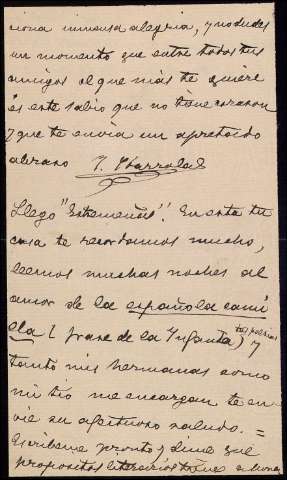 ciona inmensa alegria, y no dudes
un momento que entre todos tus
amigos el que más te quiere
és este sabio que no tiene corazon
y que te envia un apretado
abrazo
Llegó "Extremeñas". En esta tu
casa te recordamos mucho,
leemos muchas noches al
amor de la española cami
lla (frase de la Infanta) tus poesias y
tanto mis hermanas como
mi tio me encargan te en
vie su afectuoso saludo. =
Escribeme pronto y dime que
propositos literarios tienes